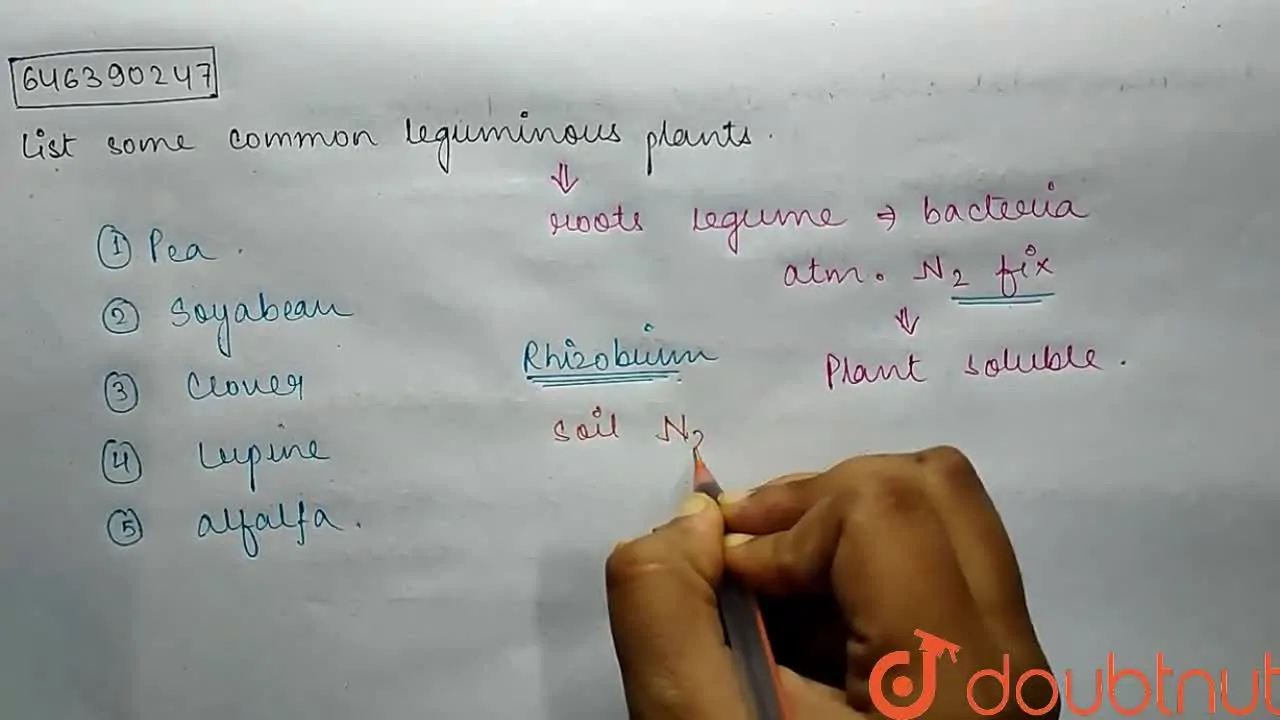 646390247
List some common leguminous plants.
⇓
roots legume ⇒ bacteria
atm. N2 fix
⇓
Plant soluble.
① Pea.
② Soyabean
③ Clover
④ Lupine
⑤ alfalfa.
Rhizobium
soil N2
doubtnut